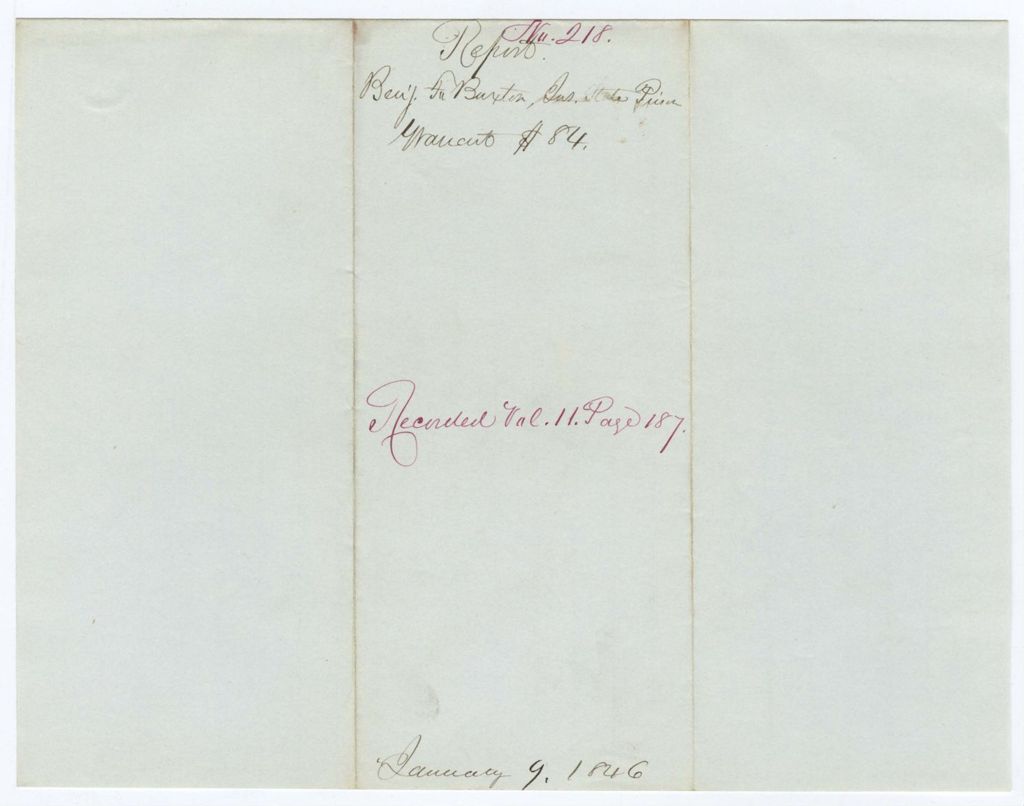 No. 218.
Report.
Benj. Fr Buxton, Ins. State Prison
Warrant $ 84.
Recorded Vol. 11. Page 187.
January 9. 1846